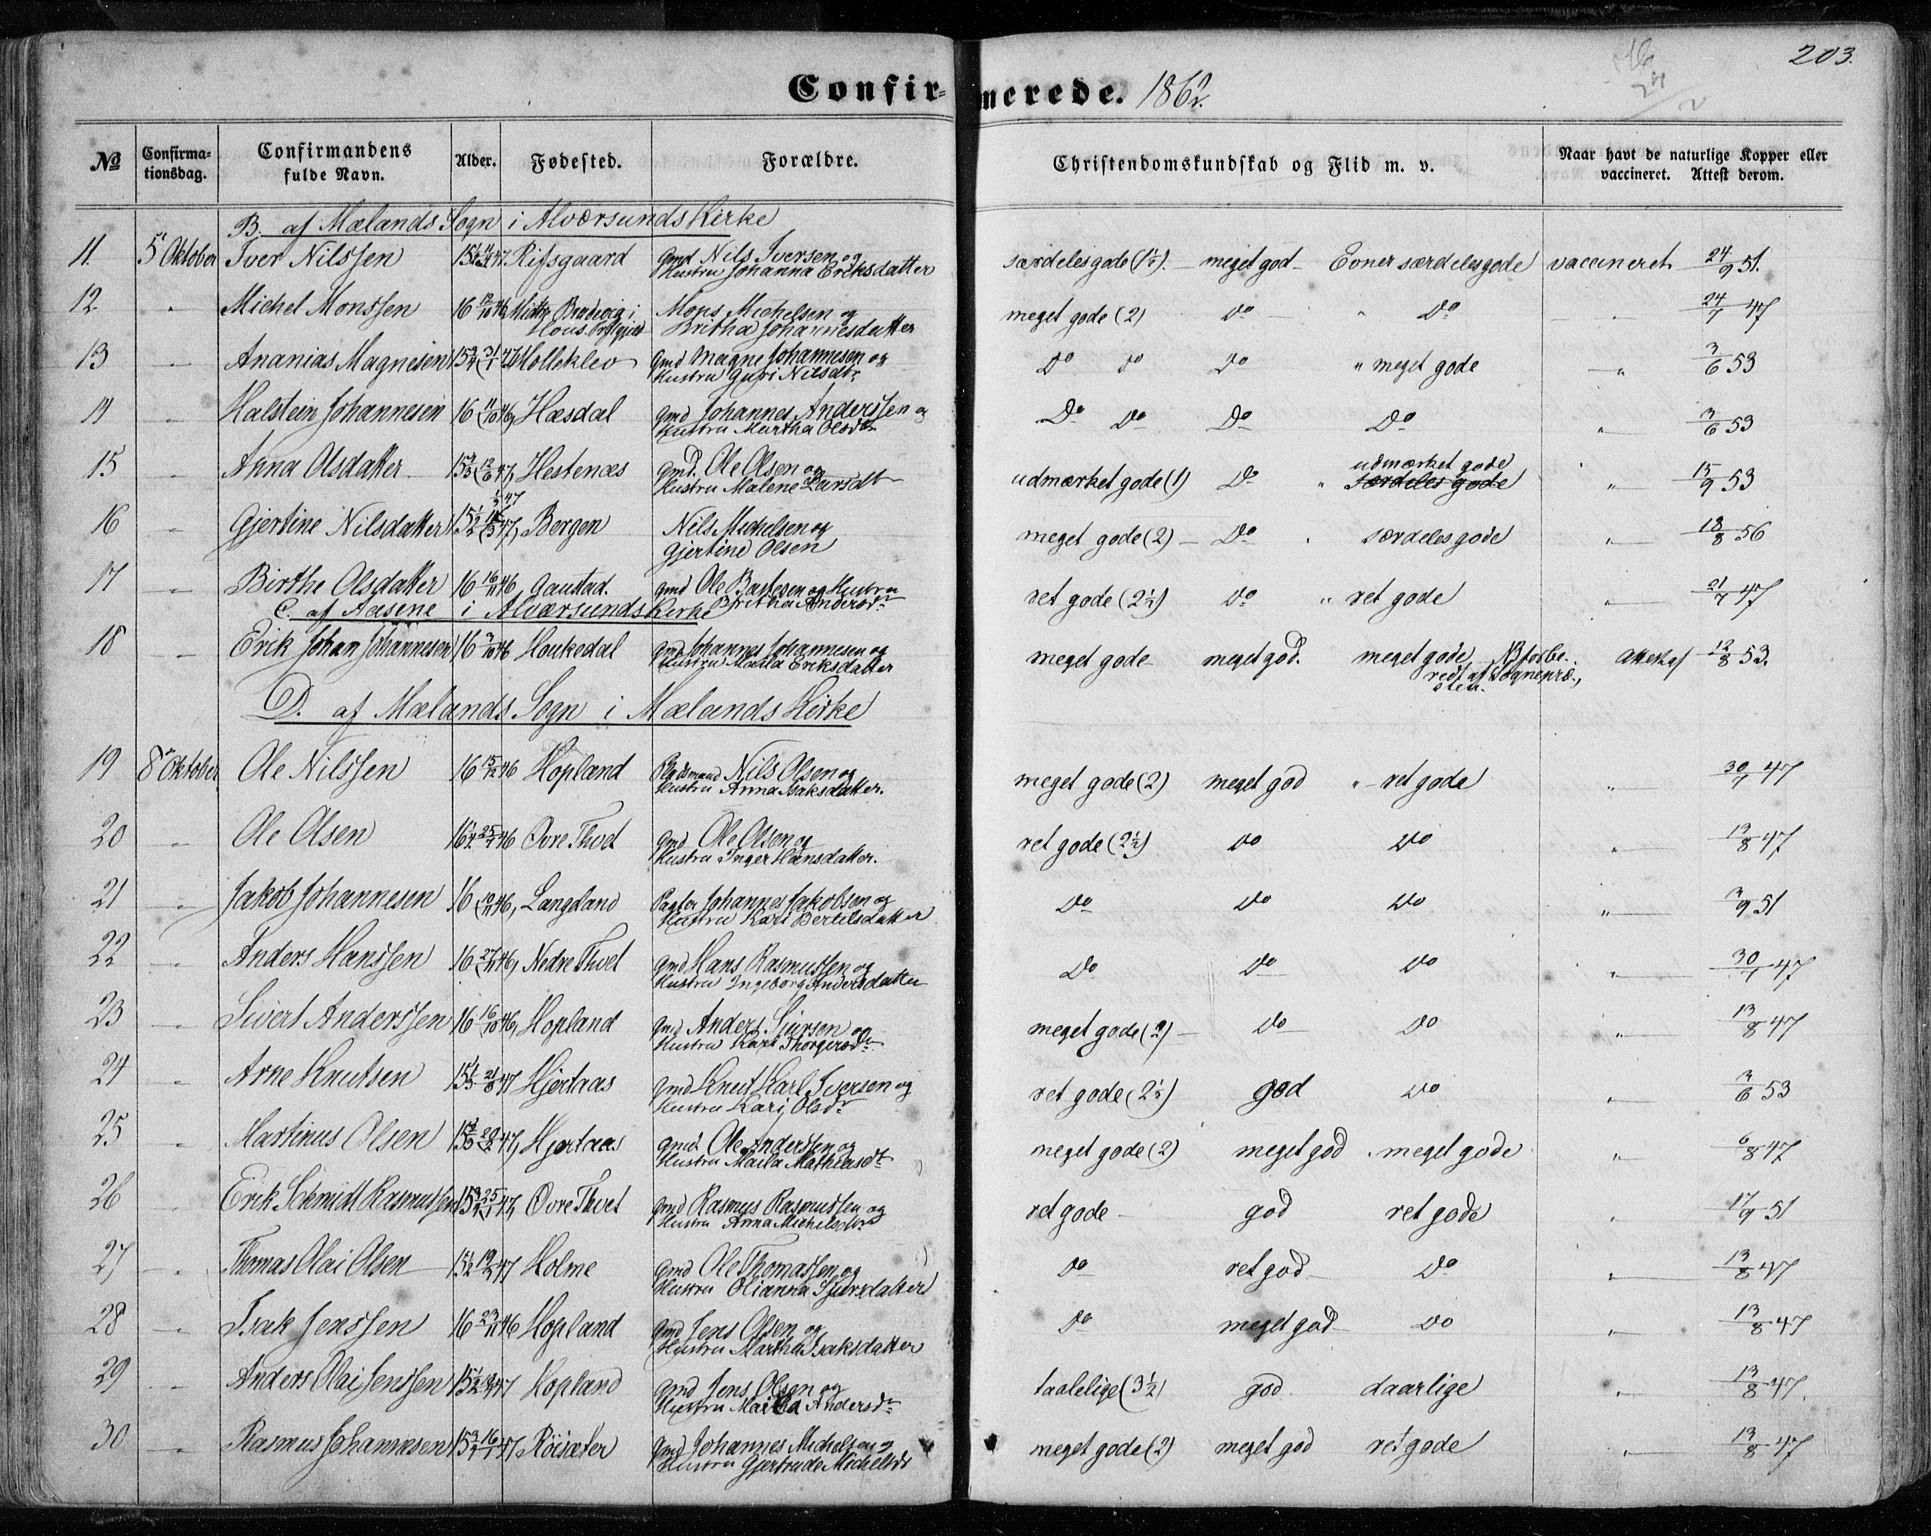 203.
Confirmerede. 1862.
№ Confirmationsdag. Confirmandens fulde Navn. Alder. Fødested. Forældre. Christendomskundskab og Flid m. v. Naar havt de naturlige Kopper eller vaccineret. Attest derom.
B. af Mælands Sogn i Alværsunds Kirke
11. 5 Oktober Iver Nilssen 47 Risgaard Gmd Nils Iversen og Hustru Johanna Eriksdatter særdeles gode (1½). meget god Evner særdeles gode vaccineret 24/9 51.
12 " Michel Monssen 16 Mons Michelsen og Britha Johannesdatter meget gode (2) Do " Do 24/7 47
13 — Ananias Magnesen 15¾ 31/1 47 Mølleklev Gmd Magne Johannesen og Hustru Guri Nilsdtr Do Do Do " meget gode " 3/6 53
14 — Halstein Johannesen 16 11/10 46, Hæsdal Gmd Johannes Anderssen og Hustru Martha Olsdtr Do Do Do Do " 3/6 53
15 — Anna Olsdatter 47, Hestenæs Gmd. Ole Olsen og Hustru Malene Larsdtr udmærket gode (1) Do " udmærket gode " 15/9 53
16 — Gjertine Nilsdatter 15½ 47, Bergen Nils Michelsen og Gjertine Olsen meget gode (2) Do " særdeles gode " 18/8 56
17 — Birthe Olsdatter 16 16/11 46 Gaustad. Gmd Ole Bastesen og Hustru Britha Andersdtr ret gode (2½) Do " ret gode " 21/7 47
C. af Aasene i Alværsunds Kirke
18 — Erik Johan Johannesen 16 3/10 46 Houkedal Gmd Johannes Johannesen og Hustru Eriksdatter meget gode meget god. meget gode NB forberedt af Sognepræsten. Attest af 12/8 53.
D. af Mælands Sogn i Mælands Kirke
19 8 Oktober Ole Nilssen 16 46 Hopland Pladsmand Nils Olsen og Hustru Anna Isaksdatter. meget gode (2) meget god " ret gode " 30/7 47
20 — Ole Olsen 46 Øvre Thvet Gmd Ole Olsen og Hustru Inger Hansdatter. ret gode (2½) Do Do " 13/8 47
21 — Jakob Johannesen 16 46, Langeland Johannes Jakobsen og Hustru Kari Bertelsdatter Do Do Do " 3/9 51
22 — Anders Hanssen 16 27/11 46, Nedre Thvet Gmd Hans Rasmussen og Hustru Ingeborg Andersdatter Do Do Do " 30/7 47
23 — Sivert Anderssen 16 16/10 46, Hopland Gmd Anders Siursen og Hustru Kari Thorgersdtr meget gode (2) Do Do " 13/8 47
24 — Arne Knutsen 21/8 47 Hjertaas Gmd Knut Karl Iversen og Hustru Kari Olsdtr ret gode (2½) god Do " 3/6 53
25 — Martinus Olsen 47, Hjertaas Gmd Ole Anderssen og Hustru Marta Mathiasdtr meget gode (2) meget god meget gode " 6/8 47
26 — Erik Schmidt Rasmussen 15¾ 25/1 47, Øvre Thvet Gmd Rasmus Rasmussen og Hustru Anna Michelsdtr ret gode god ret gode " 17/9 51
27 — Thomas Olai Olsen 15½ 47 Holme Gmd Ole Thomassen og Hustru Olianna Sjursdatter Do ret god Do " 13/8 47
28 — Isak Jenssen 16 23/11 46 Hopland Gmd Jens Olsen og Hustru Martha Isaksdatter Do meget god Do " 13/8 47
29 — Anders Olai Jenssen 15½ 47 Hopland Gmd Jens Olsen og Hustru Andersdtr taalelige (3½) god daarlige " 13/8 47.
30 — Rasmus Johannesen 15¾ 16/1 47 Røisæter Gmd Johannes Michelsen og Hustru Gjertrude Michelsdt meget gode (2) meget god ret gode " 13/8 47